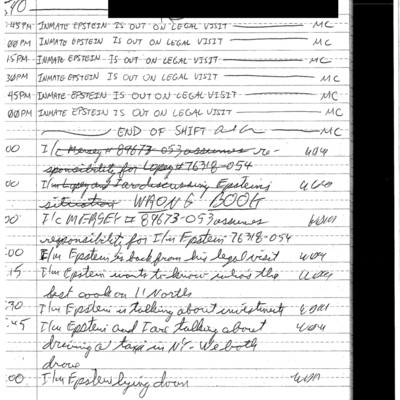 :45PM INMATE EPSTEIN IS OUT ON LEGAL VISIT — MC
:00PM INMATE EPSTEIN IS OUT ON LEGAL VISIT — MC
:15PM INMATE EPSTEIN IS OUT ON LEGAL VISIT — MC
:30PM INMATE EPSTEIN IS OUT ON LEGAL VISIT — MC
:45PM INMATE EPSTEIN IS OUT ON LEGAL VISIT — MC
:00PM INMATE EPSTEIN IS OUT ON LEGAL VISIT — MC
END OF SHIFT
:00 I/c Mersey # 89673-053 assumes re-
sponsibility for Lopez 76318-054
:00 I/m Lopez and I are discussing Epstein's
situation WRONG BOOG
:00 I/c MERSEY # 89673-053 assumes
responsibility for I/m Epstein-76318-054
:00 I/m Epstein is back from his legal visit
:15 I/m Epstein wants to know who's the
best cook on 11 North
:30 I/m Epstein is talking about investments
:45 I/m Epstein and I are talking about
driving a taxi in NY. We both
drove
:00 I/m Epstein lying down